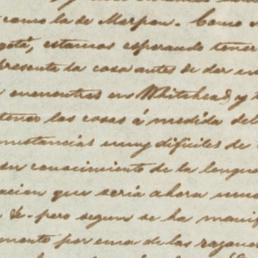 como la de Marpon. Como
gotá, estamos esperando tener
presente la cosa antes de dar en
encuentras en Whitehead, y
tener las cosas á medida del
mstancias muy dificiles de
su conocimiento de la lengua
acion que seria ahora
&. pero segun se ha manif
mento por una de las razones